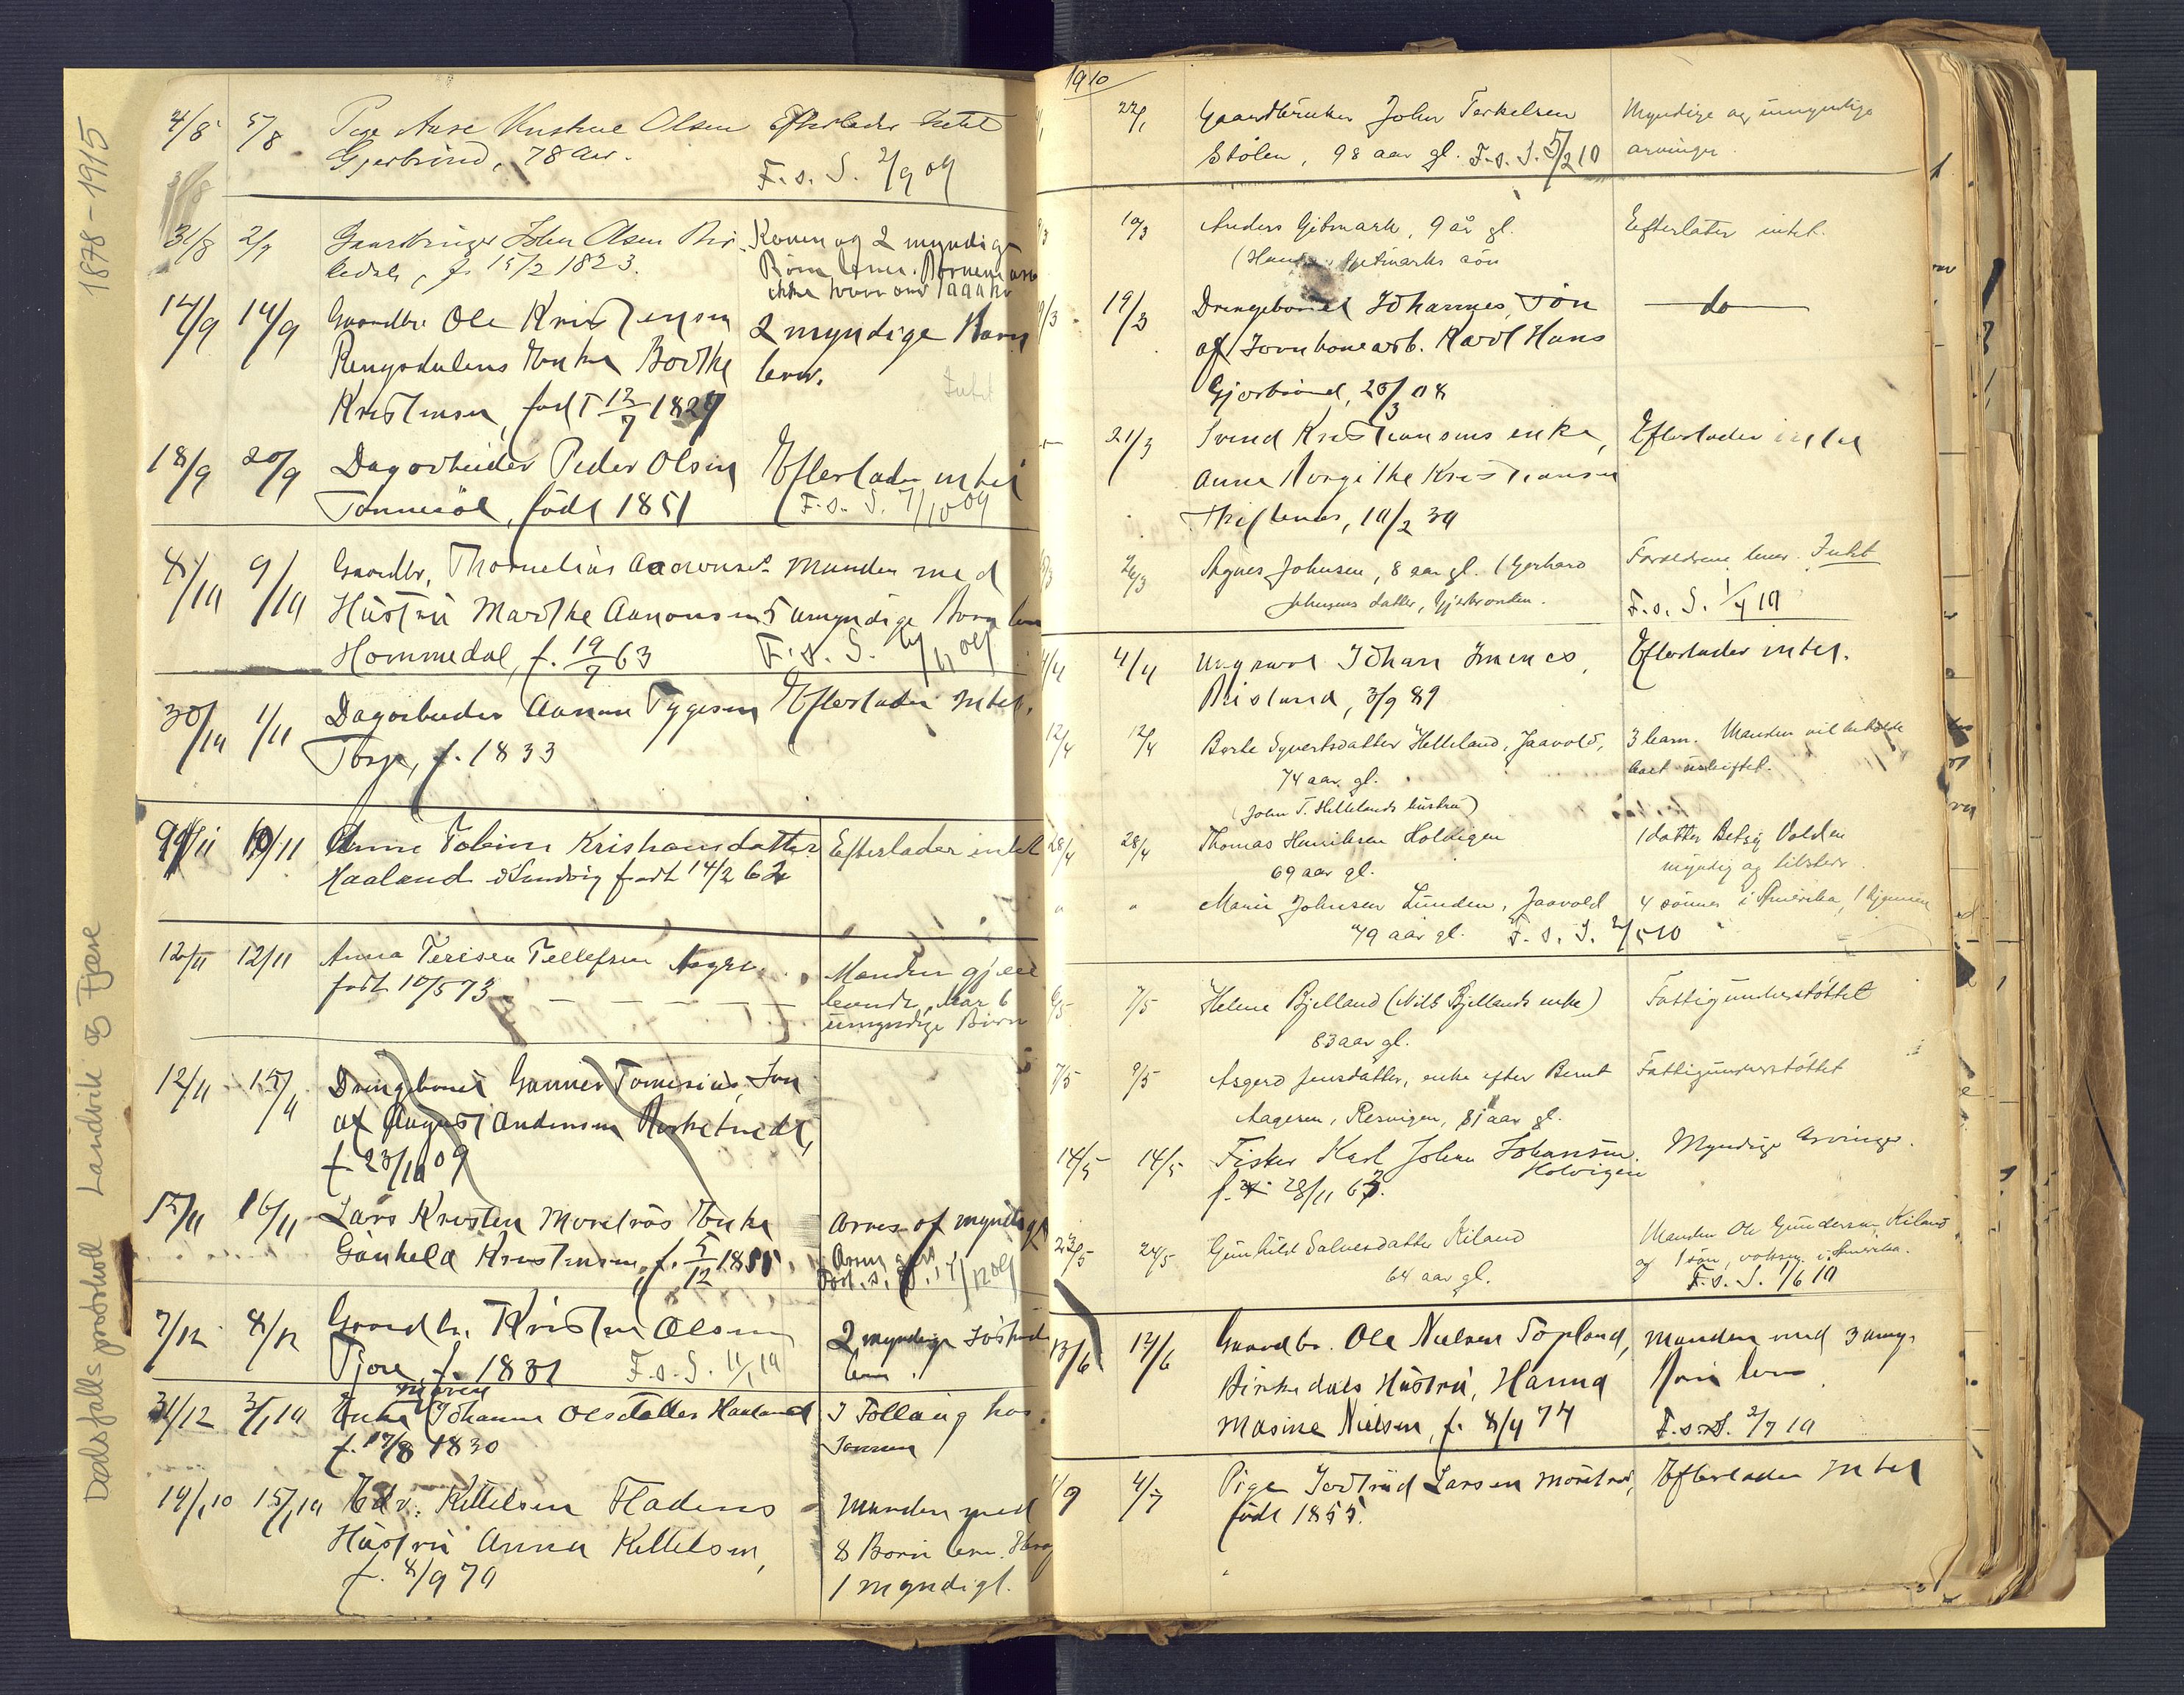 Dødsfalls protokoll Landvik og Fjære 1878-1915
4/8 5/8 Pige Anne Kristine Olsen Efterlader Intet
Gjerbrønd, 78 Aar.
F. s. S. 2/9 09
31/8 2/9 Gaardbruger John Olsen Bir- Konen og 2 myndige
kedal, f. 15/2 1823. Børn lever. Børnene
ikke
12/9 14/9 Gaardbr. Ole Kristensen 2 myndige Børn
Rengsdalens Enke Borthe lever.
Kristensen, født 12/7 1829 Intet
18/9 20/9 Dagarbeider Peder Olsen Efterlader intet
Tønnesøl, født 1851 F. s. S. 7/10 09
8/10 9/10 Gaardbr. Thornelius Aanonsens Manden med
Hustru Marthe Aanonsen 5 umyndige Børn
Hommedal, f. 19/7 63 F. s. S. 09
30/10 1/11 Dagarbeider Aanon Tygesen Efterlader intet.
Torp, f. 1833
9/11 10/11 Anne Tobine Kristiansdatter Efterlader intet
Haaland i Landvig født 14/2 62
12/11 12/11 Anna Terisen Tellefsen Manden gjen
født 10/5 73 levende, har 6
umyndige Børn
12/11 15/11 Drengebarnet Gunner Tomesius, Søn
af August Andersen
f. 23/10 09
15/11 16/11 Lars Kristen Morelrøs Enke Arves af myndige
Gunhild Kristensen, f. 5/12 18
7/12 8/12 Gaardbr. Kristen Olsen 2 myndige Søskende
Fjære, f. 1831 F. s. S. 11/1 10 lever.
31/12 3/1 10 Enke Maren Johanne Olsdatter Haaland I Føllaug hos
f. 17/8 1830 Sønnen
14/1 10 15/1 10 Edv. Kittelsen Fladens Manden med
Hustru Anna Kittelsen, 8 Børn lever.
f. 8/9 70 1 myndigt.
1910
22/1 Gaardbruker John Terkelsen Myndige og umyndige
Stølen, 98 aar gl. F. s. S. 5/2 10 arvinger.
10/3 Anders Gitmark, 9 år gl. Efterlater intet.
Gitmarks søn
19/3 Drengebarnet Johannes, Søn do
af Jernbanearb. Karl Hans
Gjerbrønd, 20/3 08
21/3 Svend Kristiansens enke, Efterlader intet
Anne Margithe Kristiansen
10/2 30
26/3 Agnes Johnsen, 8 aar gl. (Gerhard Forældrene lever. Intet
Johnsens datter, Gjerbrønden. F. s. S. 1/4 10
4/4 4/4 Ungkarl Johan Jmenes, Efterlader intet.
Risland, 3/9 89
12/4 12/4 Berte Syvertsdatter Helleland, Jaavold, 3 barn. Manden vil beholde
74 aar gl. boet uskiftet.
(John T. Hellelands hustru)
28/4 28/4 Thomas Henriksen Holvigen 1 datter Betsy Volden
69 aar gl. myndig og tilstede.
" " Marie Johnsen Lunden, Jaavold 4 sønner i Amerika, 1 hjemme
79 aar gl. F. s. S. 2/5 10
6/5 7/5 Helene Bjelland (Nils Bjellands enke) Fattigunderstøttet
83 aar gl.
7/5 9/5 Asgerd Jensdatter, enke efter Bernt Fattigunderstøttet
Aagesen, Resvigen, 81 aar gl.
14/5 14/5 Fisker Karl Johan Johansen. Myndige arvinger.
Holvigen
f. 28/11 63.
23/5 24/5 Gunhild Salvesdatter Kiland Manden Ole Gundersen Kiland
64 aar gl. og 1 søn, voksen, i Amerika.
F. s. S. 1/6 10
13/6 14/6 Gaardbr. Ole Nielsen Topland, Manden med 3 umyn.
Birkedals Hustru, Hanna Børn lever.
Masine Nielsen, f. 8/4 74 F. s. S. 2/7 10
4/7 Pige Jertrud Larsen Morelrøs, Efterlader intet
født 1855.